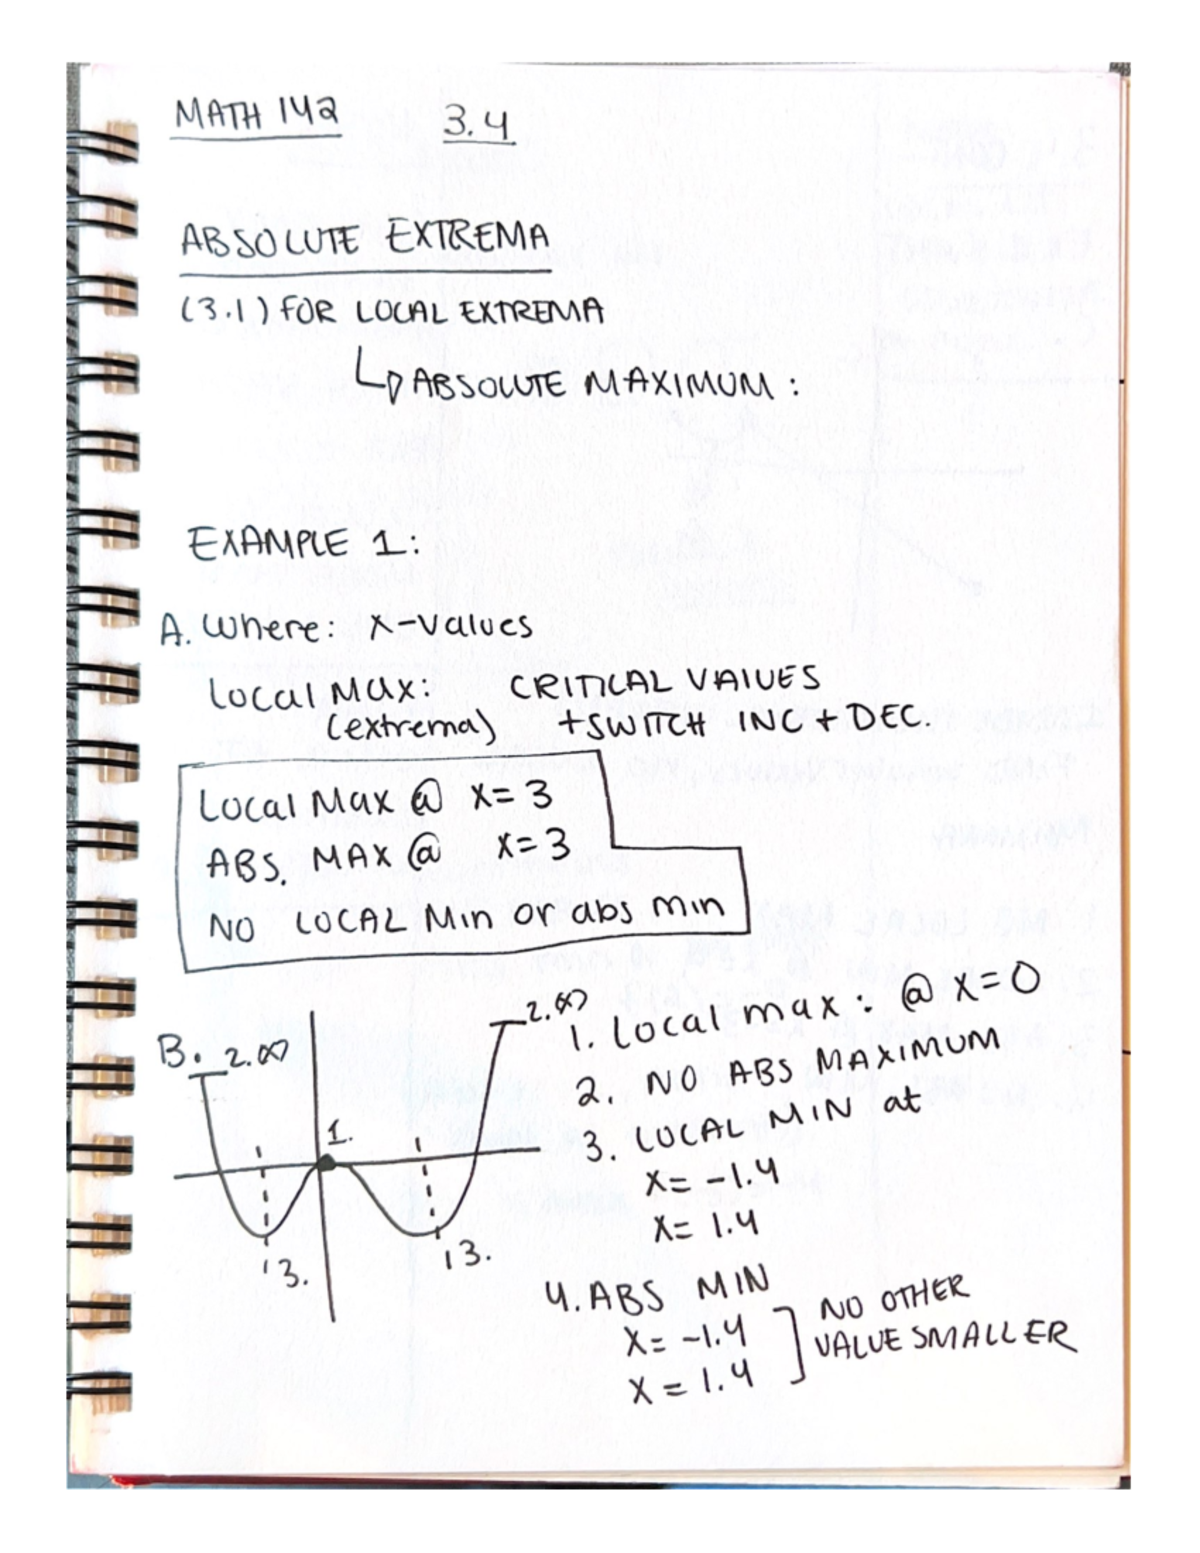 MATH 142 3.4
ABSOLUTE EXTREMA
(3.1) FOR LOCAL EXTREMA
ABSOLUTE MAXIMUM:
EXAMPLE 1:
A. Where: x-values
Local Max: CRITICAL VALUES
(extrema) + SWITCH INC + DEC.
Local Max @ x=3
ABS. MAX @ x=3
NO LOCAL Min or abs min
B. 2.∞
2.∞
1.
'3.
'3.
1. Local max: @ x=0
2. NO ABS MAXIMUM
3. LOCAL MIN at
x= -1.4
x= 1.4
4. ABS MIN
x= -1.4
x = 1.4
NO OTHER
VALUE SMALLER